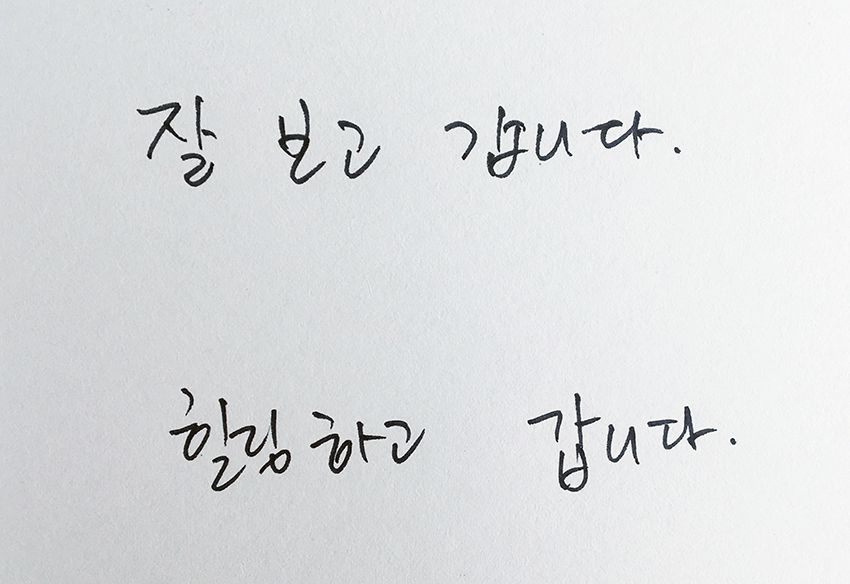 잘 보고 갑니다.
힐링하고 갑니다.